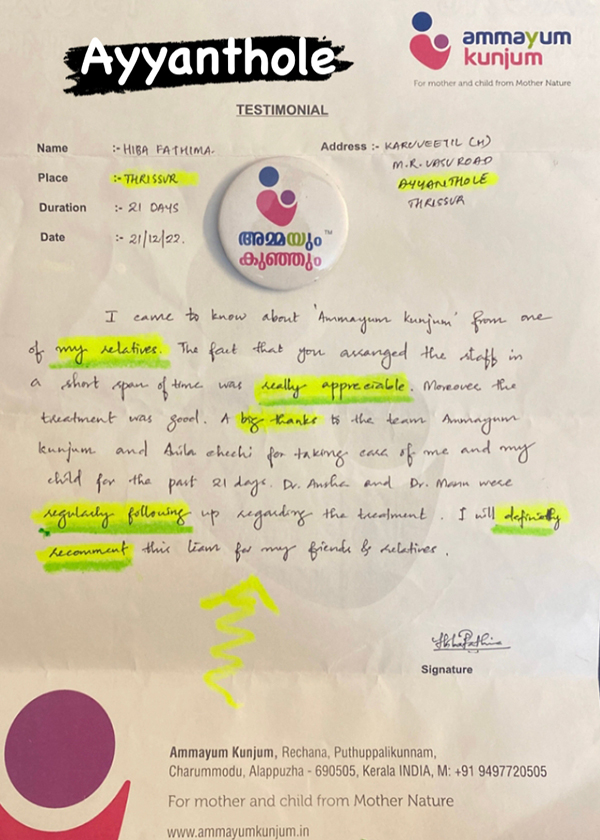 Ayyanthole
ammayum
kunjum
For mother and child from Mother Nature
TESTIMONIAL
Name :- HIBA FATHIMA. Address :- KARUVEETIL (H)
M.R. VASU ROAD
Place :- THRISSUR AYYANTHOLE
Duration :- 21 DAYS THRISSUR
Date :- 21/12/22.
അമ്മയും TM
കുഞ്ഞും
I came to know about 'Ammayum kunjum' from one
of my relatives. The fact that you arranged the staff in
a short span of time was really appreciable. Moreover the
treatment was good. A big thanks to the team Ammayum
kunjum and chechi for taking care of me and my
child for the past 21 days. Dr. and Dr. were
regularly following up regarding the treatment. I will definietly
recomment this team for my friends & relatives.
Signature
Ammayum Kunjum, Rechana, Puthuppalikunnam,
Charummodu, Alappuzha - 690505, Kerala INDIA, M: +91 9497720505
For mother and child from Mother Nature
www.ammayumkunjum.in